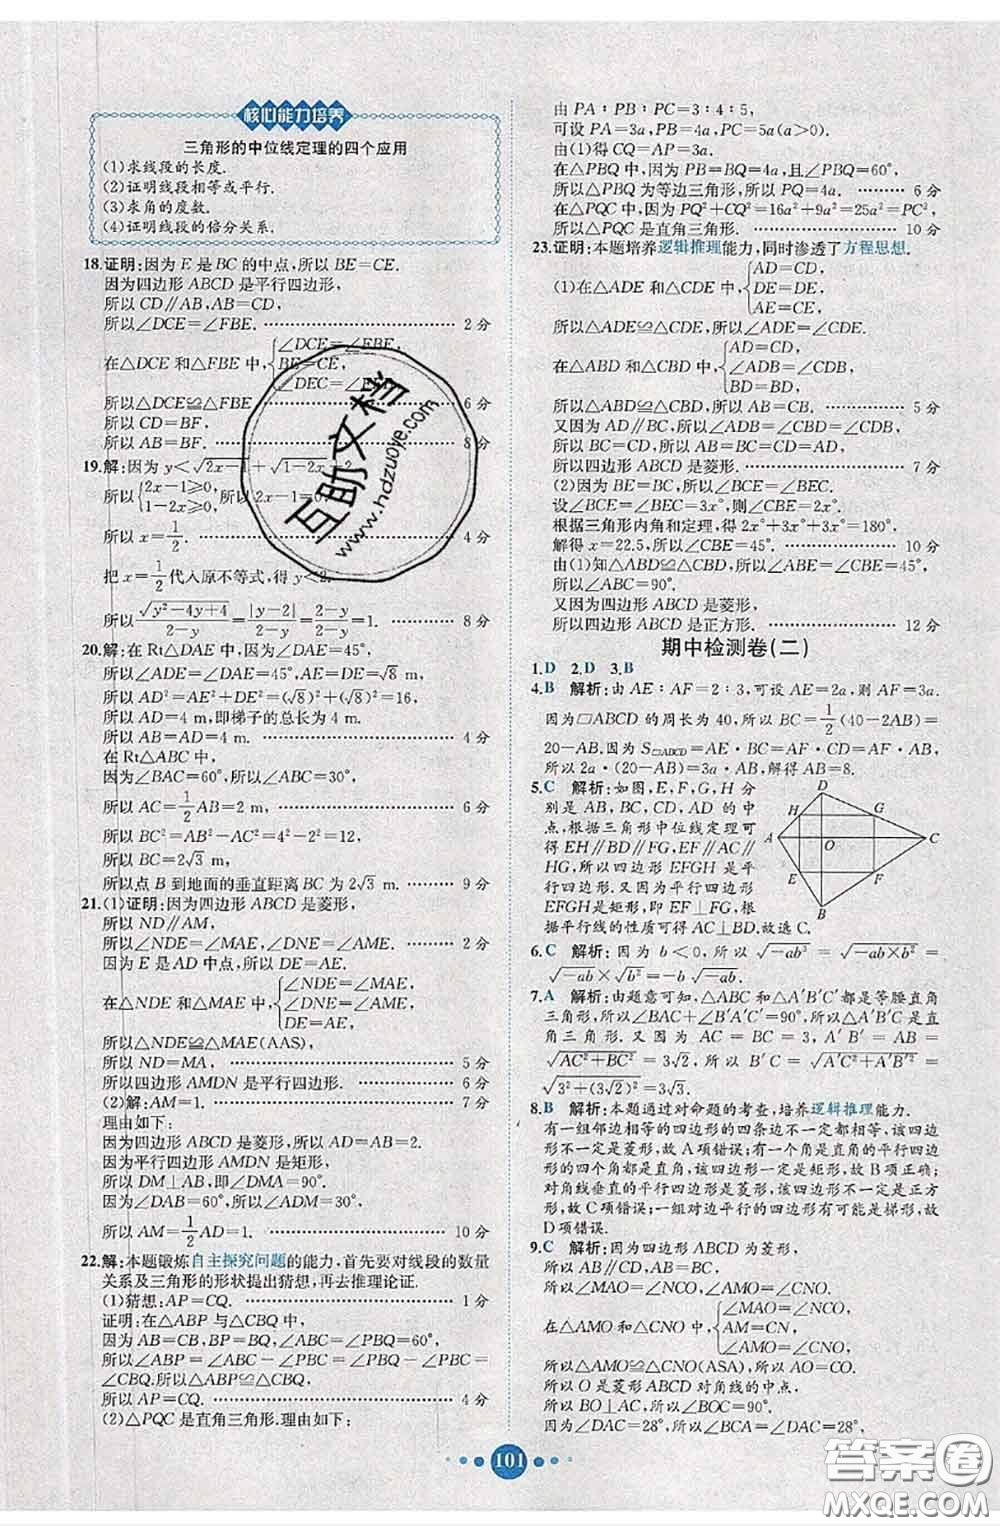 核心能力培养
三角形的中位线定理的四个应用
(1)求线段的长度.
(2)证明线段相等或平行.
(3)求角的度数.
(4)证明线段的倍分关系.
18.证明:因为 E 是 BC 的中点,所以 BE=CE.
因为四边形 ABCD 是平行四边形,
所以 CD∥AB,AB=CD,
所以∠DCE=∠FBE. 2 分
在△DCE 和△FBE 中,{∠DCE=∠FBE,
BE=CE,
∠DEC=∠
所以△DCE≌△FBE 6 分
所以 CD=BF.
所以 AB=BF. 8 分
19.解:因为 y<√(2x-1)+√(1-2x)+2
所以{2x-1≥0, 1-2x≥0, 所以 2x-1=0,
所以 x=1/2. 4 分
把 x=1/2 代入原不等式,得 y<2.
所以 √(y²-4y+4)/(2-y)=|y-2|/(2-y)=(2-y)/(2-y)=1. 8 分
20.解:在 Rt△DAE 中,∠DAE=45°,
所以∠ADE=∠DAE=45°,AE=DE=√8 m,
所以 AD²=AE²+DE²=(√8)²+(√8)²=16,
所以 AD=4 m,即梯子的总长为 4 m.
所以 AB=AD=4 m. 4 分
在 Rt△ABC 中,
因为∠BAC=60°,所以∠ABC=30°,
所以 AC=1/2AB=2 m, 6 分
所以 BC²=AB²-AC²=4²-2²=12,
所以 BC=2√3 m.
所以点 B 到地面的垂直距离 BC 为 2√3 m. 9 分
21.(1)证明:因为四边形 ABCD 是菱形,
所以 ND∥AM,
所以∠NDE=∠MAE,∠DNE=∠AME. 2 分
因为 E 是 AD 中点,所以 DE=AE.
在△NDE 和△MAE 中,{∠NDE=∠MAE,
∠DNE=∠AME,
DE=AE,
所以△NDE≌△MAE(AAS),
所以 ND=MA, 5 分
所以四边形 AMDN 是平行四边形. 6 分
(2)解:AM=1. 7 分
理由如下:
因为四边形 ABCD 是菱形,所以 AD=AB=2.
因为平行四边形 AMDN 是矩形,
所以 DM⊥AB,即∠DMA=90°.
因为∠DAB=60°,所以∠ADM=30°.
所以 AM=1/2AD=1. 10 分
22.解:本题锻炼自主探究问题的能力,首先要对线段的数量
关系及三角形的形状提出猜想,再去推理论证.
(1)猜想:AP=CQ. 1 分
证明:在△ABP 与△CBQ 中,
因为 AB=CB,BP=BQ,∠ABC=∠PBQ=60°,
所以∠ABP=∠ABC-∠PBC=∠PBQ-∠PBC=
∠CBQ.所以△ABP≌△CBQ.
所以 AP=CQ. 4 分
(2)△PQC 是直角三角形.理由如下:
由 PA∶PB∶PC=3∶4∶5,
可设 PA=3a,PB=4a,PC=5a(a>0),
由(1)得 CQ=AP=3a.
在△PBQ 中,因为 PB=BQ=4a,且∠PBQ=60°,
所以△PBQ 为等边三角形,所以 PQ=4a. 6 分
在△PQC 中,因为 PQ²+CQ²=16a²+9a²=25a²=PC²
所以△PQC 是直角三角形. 10 分
23.证明:本题培养逻辑推理能力,同时渗透了方程思想.
(1)在△ADE 和△CDE 中,{AD=CD,
DE=DE,
AE=CE,
所以△ADE≌△CDE,所以∠ADE=∠CDE.
在△ABD 和△CBD 中,{AD=CD,
∠ADB=∠CDB,
BD=BD,
所以△ABD≌△CBD,所以 AB=CB. 5 分
又因为 AD∥BC,所以∠ADB=∠CBD=∠CDB,
所以 BC=CD,所以 AB=BC=CD=AD.
所以四边形 ABCD 是菱形. 7 分
(2)因为 BE=BC,所以∠BCE=∠BEC.
设∠BCE=∠BEC=3x°,则∠CBE=2x°.
根据三角形内角和定理,得 2x°+3x°+3x°=180°,
解得 x=22.5,所以∠CBE=45°. 10 分
由(1)知△ABD≌△CBD,所以∠ABE=∠CBE=45°,
所以∠ABC=90°.
又因为四边形 ABCD 是菱形,
所以四边形 ABCD 是正方形. 12 分
期中检测卷(二)
1.D 2.D 3.B
4.B 解析:由 AE∶AF=2∶3,可设 AE=2a,则 AF=3a.
因为□ABCD 的周长为 40,所以 BC=1/2(40-2AB)=
20-AB.因为 S□ABCD=AE·BC=AF·CD,
所以 2a·(20-AB)=3a·AB,解得 AB=8.
5.C 解析:如图,E,F,G,H 分
别是 AB,BC,CD,AD 的中
点,根据三角形中位线定理可
得 EH∥BD∥FG,EF∥AC∥
HG,所以四边形 EFGH 是平
行四边形.又因为平行四边形
EFGH 是矩形,即 EF⊥FG,根
据平行线的性质可得 AC⊥BD.故选 C.
D
H
G
A
O
C
E
F
B
6.C 解析:因为 b<0,所以 √(-ab³)=√(-ab×b²)=
√(-ab)×√(b²)=-b√(-ab).
7.A 解析:由题意可知,△ABC 和△A′B′C′都是等腰直角
三角形,所以∠BAC+∠B′A′C′=90°,所以△A′B′C 是
直角三角形.又因为 AC=BC=3,A′B′=AB=
√(AC²+BC²)=3√2,所以 B′C=√(A′C²+A′B′²)=
√(3²+(3√2)²)=3√3.
8.B 解析:本题通过对命题的考查,培养逻辑推理能力.
有一组邻边相等的四边形的四条边不一定都相等,该四边
形不一定是菱形,故 A 项错误;有一个角是直角的平行四边
形的四个角都是直角,该四边形一定是矩形,故 B 项正确;
对角线垂直的平行四边形是菱形,该四边形不一定是正方
形,故 C 项错误;一组对边平行的四边形有可能是梯形,故
D 项错误.
9.C 解析:因为四边形 ABCD 为菱形,
所以 AB∥CD,AB=BC,
所以∠MAO=∠NCO,∠AMO=∠CNO.
在△AMO 和△CNO 中,{∠MAO=∠NCO,
AM=CN,
∠AMO=∠CNO,
所以△AMO≌△CNO(ASA),所以 AO=CO.
所以 O 是菱形 ABCD 对角线的中点,
所以 BO⊥AC,所以∠BOC=90°.
因为∠DAC=28°,所以∠BCA=∠DAC=28°,
101
互助文档
www.hdzuoye.com
答案圈
MXQE.COM